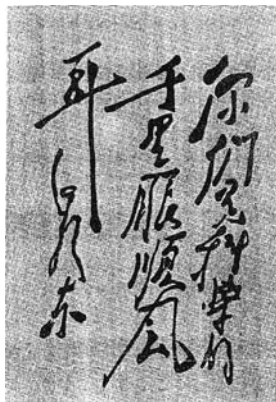 你們是科學的
千里眼順風
耳 毛澤東